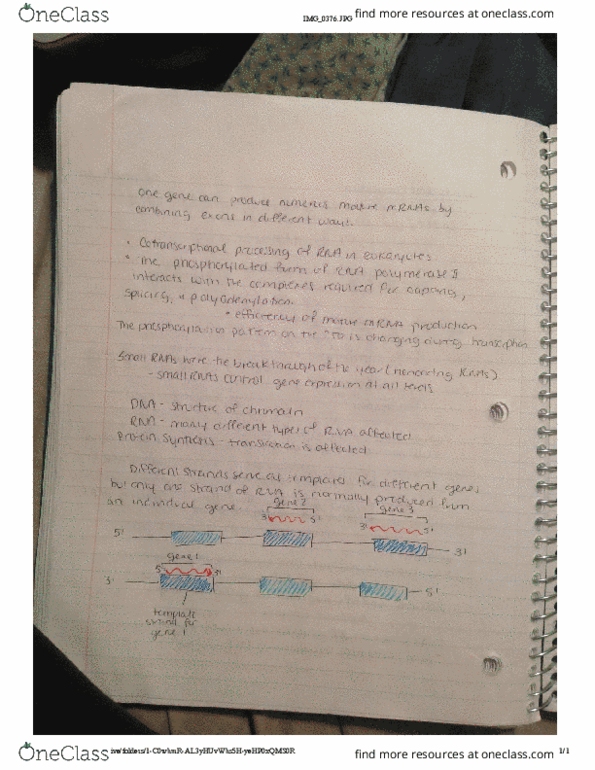 OneClass
IMG_0376.JPG
find more resources at oneclass.com
One gene can produce numerous mature mRNAs by
combining exons in different ways.
• Cotranscriptional processing of RNA in eukaryotes
• The phosphorylated form of RNA polymerase II
interacts with the complexes required for capping,
splicing, & polyadenylation.
• efficiency of mature mRNA production
The phosphorylation pattern on the CTD is changing during transcription
Small RNAs were the breakthrough of the year (noncoding RNAs)
- small RNAs control gene expression at all levels
DNA - structure of chromatin
RNA - many different types of RNA affected
Protein synthesis - translation is affected
Different strands serve as templates for different genes,
but only one strand of RNA is normally produced from
an individual gene.
gene 2
gene 3
3' 5'
3' 5'
5' 3'
gene 1
5' 3'
3' 5'
template
strand for
gene 1
OneClass
find more resources at oneclass.com
1/1